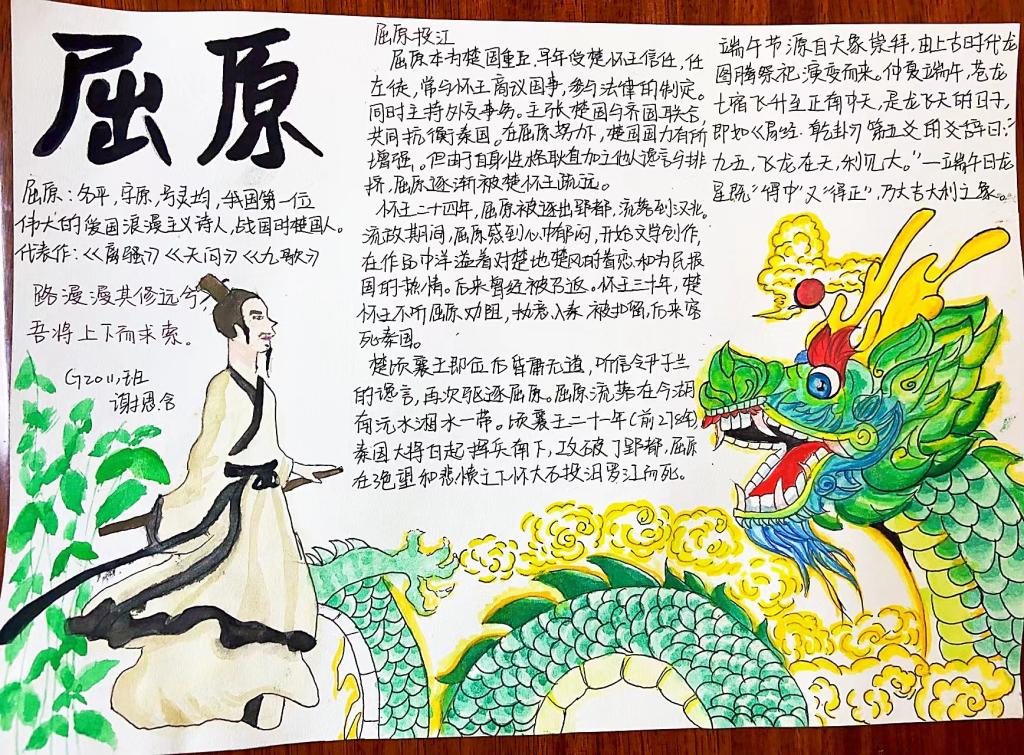 屈原
屈原：名平，字原，号灵均，我国第一位
伟大的爱国浪漫主义诗人，战国时楚国人。
代表作：《离骚》《天问》《九歌》
路漫漫其修远兮，
吾将上下而求索。
G2011班
谢思含
屈原投江
屈原本为楚国重臣，早年受楚怀王信任，任
左徒，常与怀王商议国事，参与法律的制定。
同时主持外交事务。主张楚国与齐国联合，
共同抗衡秦国。在屈原努力下，楚国国力有所
增强。但由于自身性格耿直加之他人谗言与排
挤，屈原逐渐被楚怀王疏远。
怀王二十四年，屈原被逐出郢都，流落到汉北。
流放期间，屈原感到心中郁闷，开始文学创作，
在作品中洋溢着对楚地楚风的眷恋和为民报
国的热情。后来曾经被召返。怀王三十年，楚
怀王不听屈原劝阻，执意入秦，被扣留，后来客
死秦国。
楚顷襄王即位后昏庸无道，听信令尹子兰
的谗言，再次驱逐屈原。屈原流落在今湖
南沅水湘水一带。顷襄王二十一年(前278年)
秦国大将白起挥兵南下，攻破了郢都，屈原
在绝望和悲愤之下怀大石投汨罗江而死。
端午节源自天象崇拜，由上古时代龙
图腾祭祀演变而来。仲夏端午，苍龙
七宿飞升至正南中天，是龙飞天的日子，
即如《易经·乾卦》第五爻的爻辞曰：“
九五，飞龙在天，利见大。”一端午日龙
星既“得中”又“得正”，乃大吉大利之象。